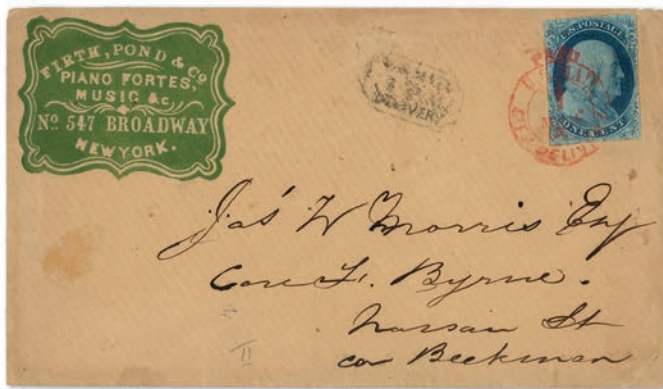 FIRTH, POND & Co
PIANO FORTES,
MUSIC &c.
No. 547 BROADWAY
NEW YORK.
DELIVERY
U.S. POSTAGE
ONE CENT
PAID
Jas' W Morris Esq
Care L. Byrne.
Nassau St
cor Beekman
II